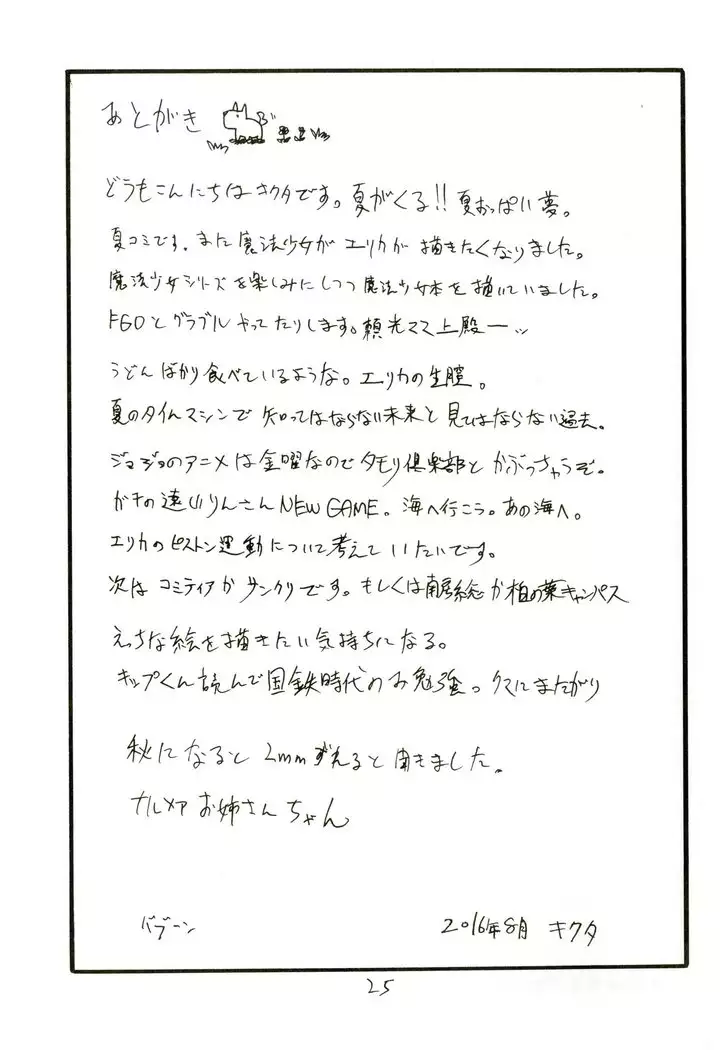 あとがき
どうもこんにちはキクタです。夏がくる!! 夏おっぱい夢。
夏コミです。また魔法少女が エリカが 描きたくなりました。
魔法少女シリーズを楽しみにしつつ 魔法少女本を描いていました。
FGOとグラブルやってたりします。頼光ママ上殿ーッ
うどんばかり食べているような。エリカの生膣。
夏のタイムマシンで 知ってはならない未来と見てはならない過去。
ジョジョのアニメは金曜なのでタモリ倶楽部と かぶっちゃうぞ。
ガチの遠山りんさんNEW GAME。海へ行こう。あの海へ。
エリカのピストン運動について考えていたいです。
次は コミティアか サンクリです。もしくは南房総か柏の葉キャンパス
えっちな絵を描きたい気持ちになる。
キップくん読んで国鉄時代のお勉強。クマにまたがり
秋になると 2mmずれると聞きました。
カルメア お姉さんちゃん
バブーン
2016年8月 キクタ
25